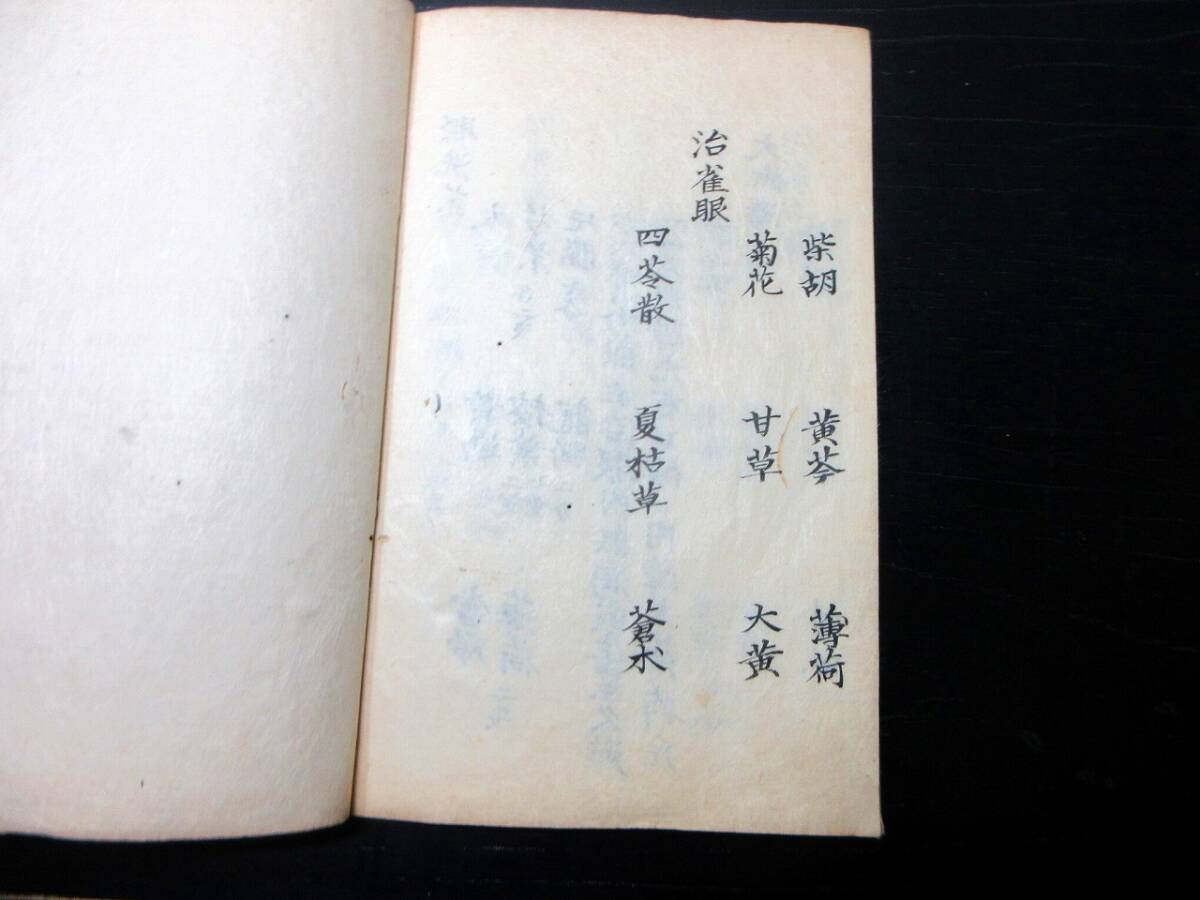 柴胡 黄芩 薄荷
菊花 甘草 大黄
治雀眼
四苓散 夏枯草 蒼朮